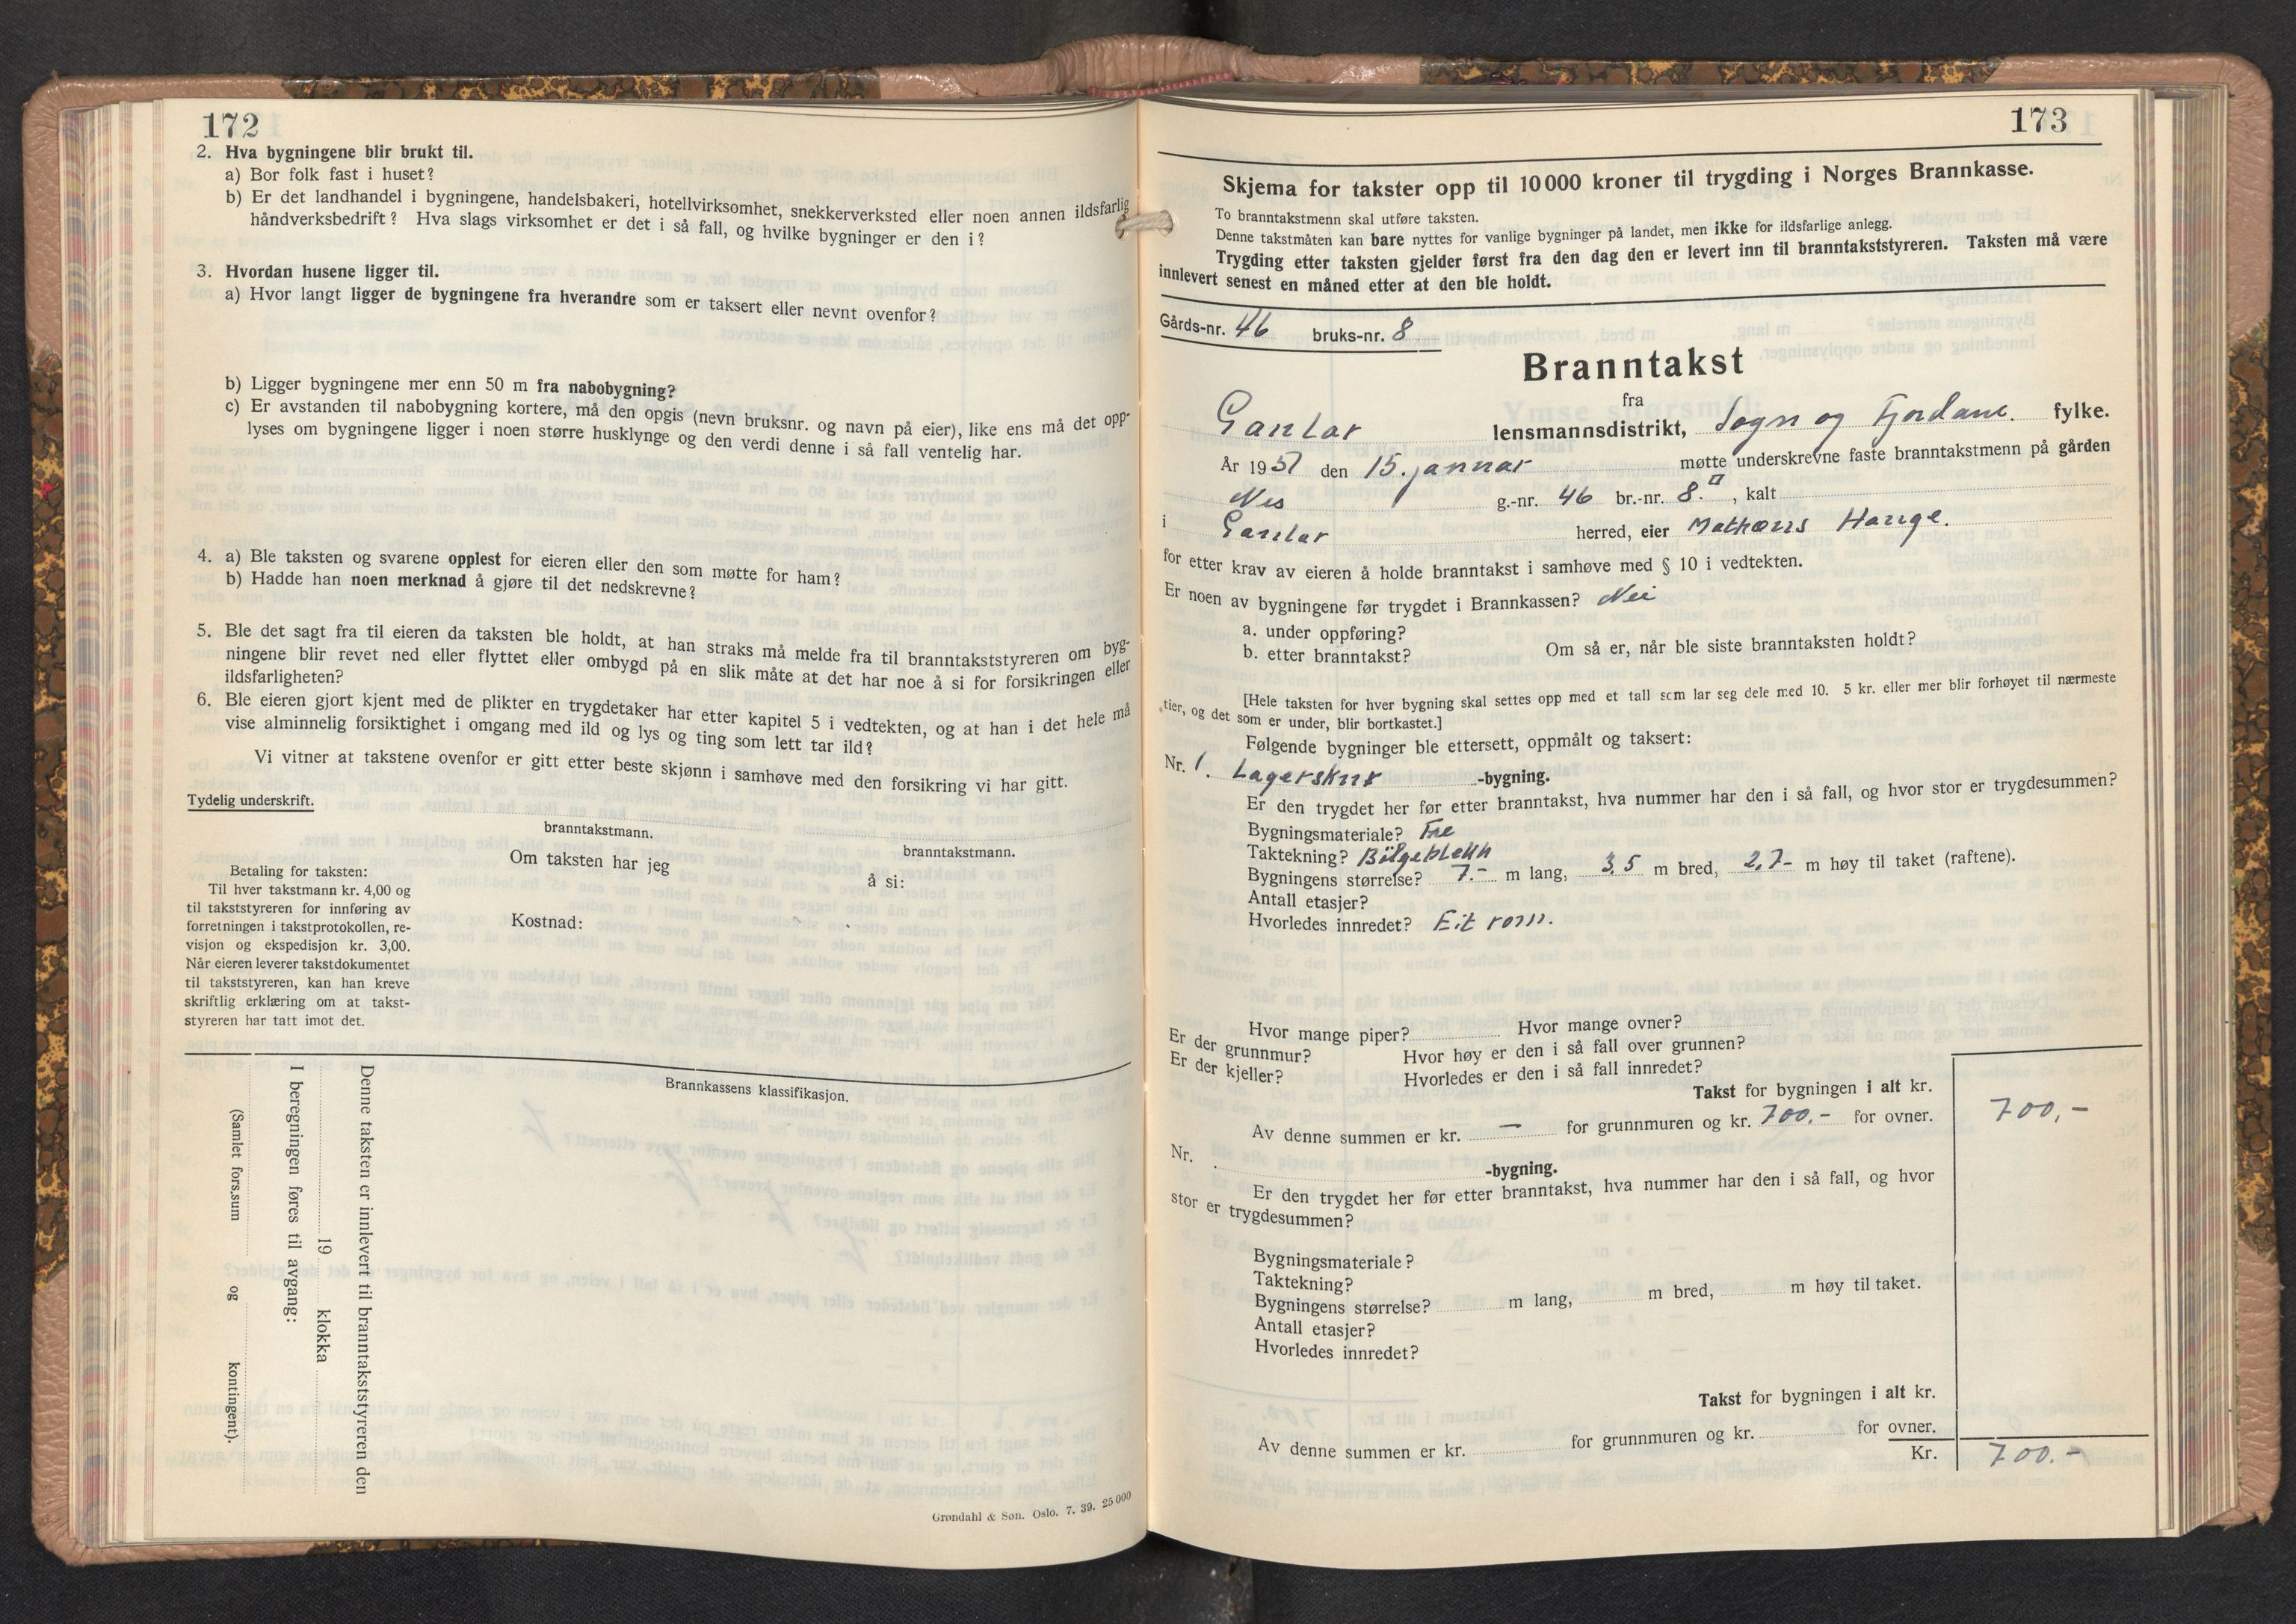 172
2. Hva bygningene blir brukt til.
a) Bor folk fast i huset?
b) Er det landhandel i bygningene, handelsbakeri, hotellvirksomhet, snekkerverksted eller noen annen ildsfarlig
håndverksbedrift? Hva slags virksomhet er det i så fall, og hvilke bygninger er den i?
3. Hvordan husene ligger til.
a) Hvor langt ligger de bygningene fra hverandre som er taksert eller nevnt ovenfor?
b) Ligger bygningene mer enn 50 m fra nabobygning?
c) Er avstanden til nabobygning kortere, må den opgis (nevn bruksnr. og navn på eier), like ens må det opp-
lyses om bygningene ligger i noen større husklynge og den verdi denne i så fall ventelig har.
4. a) Ble taksten og svarene opplest for eieren eller den som møtte for ham?
b) Hadde han noen merknad å gjøre til det nedskrevne?
5. Ble det sagt fra til eieren da taksten ble holdt, at han straks må melde fra til branntakststyreren om byg-
ningene blir revet ned eller flyttet eller ombygd på en slik måte at det har noe å si for forsikringen eller
ildsfarligheten?
6. Ble eieren gjort kjent med de plikter en trygdetaker har etter kapitel 5 i vedtekten, og at han i det hele må
vise alminnelig forsiktighet i omgang med ild og lys og ting som lett tar ild?
Vi vitner at takstene ovenfor er gitt etter beste skjønn i samhøve med den forsikring vi har gitt.
Tydelig underskrift.
branntakstmann.
branntakstmann.
Om taksten har jeg
å si:
Kostnad:
Betaling for taksten:
Til hver takstmann kr. 4,00 og
til takststyreren for innføring av
forretningen i takstprotokollen, re-
visjon og ekspedisjon kr. 3,00.
Når eieren leverer takstdokumentet
til takststyreren, kan han kreve
skriftlig erklæring om at takst-
styreren har tatt imot det.
Brannkassens klassifikasjon.
Denne taksten er innlevert til branntakststyreren den
19 klokka
I beregningen føres til avgang:
(Samlet fors.sum og kontingent).
Grøndahl & Søn. Oslo. 7. 39. 25 000
173
Skjema for takster opp til 10 000 kroner til trygding i Norges Brannkasse.
To branntakstmenn skal utføre taksten.
Denne takstmåten kan bare nyttes for vanlige bygninger på landet, men ikke for ildsfarlige anlegg.
Trygding etter taksten gjelder først fra den dag den er levert inn til branntakststyreren. Taksten må være
innlevert senest en måned etter at den ble holdt.
Gårds-nr. 46 bruks-nr. 8
Branntakst
fra
Gaular lensmannsdistrikt, Sogn og Fjordane. fylke.
År 1951 den 15. januar møtte underskrevne faste branntakstmenn på gården
Nes g.-nr. 46 br.-nr. 8. , kalt
i Gaular herred, eier Mathæus Hauge.
for etter krav av eieren å holde branntakst i samhøve med § 10 i vedtekten.
Er noen av bygningene før trygdet i Brannkassen? Nei
a. under oppføring?
b. etter branntakst? Om så er, når ble siste branntaksten holdt?
[Hele taksten for hver bygning skal settes opp med et tall som lar seg dele med 10. 5 kr. eller mer blir forhøyet til nærmeste
tier, og det som er under, blir bortkastet.]
Følgende bygninger ble ettersett, oppmålt og taksert:
Nr. 1. Lagerskur -bygning.
Er den trygdet her før etter branntakst, hva nummer har den i så fall, og hvor stor er trygdesummen?
Bygningsmateriale? Tre
Taktekning? Bølgeblekk
Bygningens størrelse? 7.- m lang, 3,5 m bred, 2,7- m høy til taket (raftene).
Antall etasjer?
Hvorledes innredet? Eit rom.
Hvor mange piper? Hvor mange ovner?
Er der grunnmur? Hvor høy er den i så fall over grunnen?
Er der kjeller? Hvorledes er den i så fall innredet?
Takst for bygningen i alt kr.
Av denne summen er kr. — for grunnmuren og kr. 700.- for ovner. 700,-
Nr. -bygning.
Er den trygdet her før etter branntakst, hva nummer har den i så fall, og hvor
stor er trygdesummen?
Bygningsmateriale?
Taktekning?
Bygningens størrelse? m lang, m bred, m høy til taket.
Antall etasjer?
Hvorledes innredet?
Takst for bygningen i alt kr.
Av denne summen er kr. for grunnmuren og kr. for ovner.
Kr. 700.-